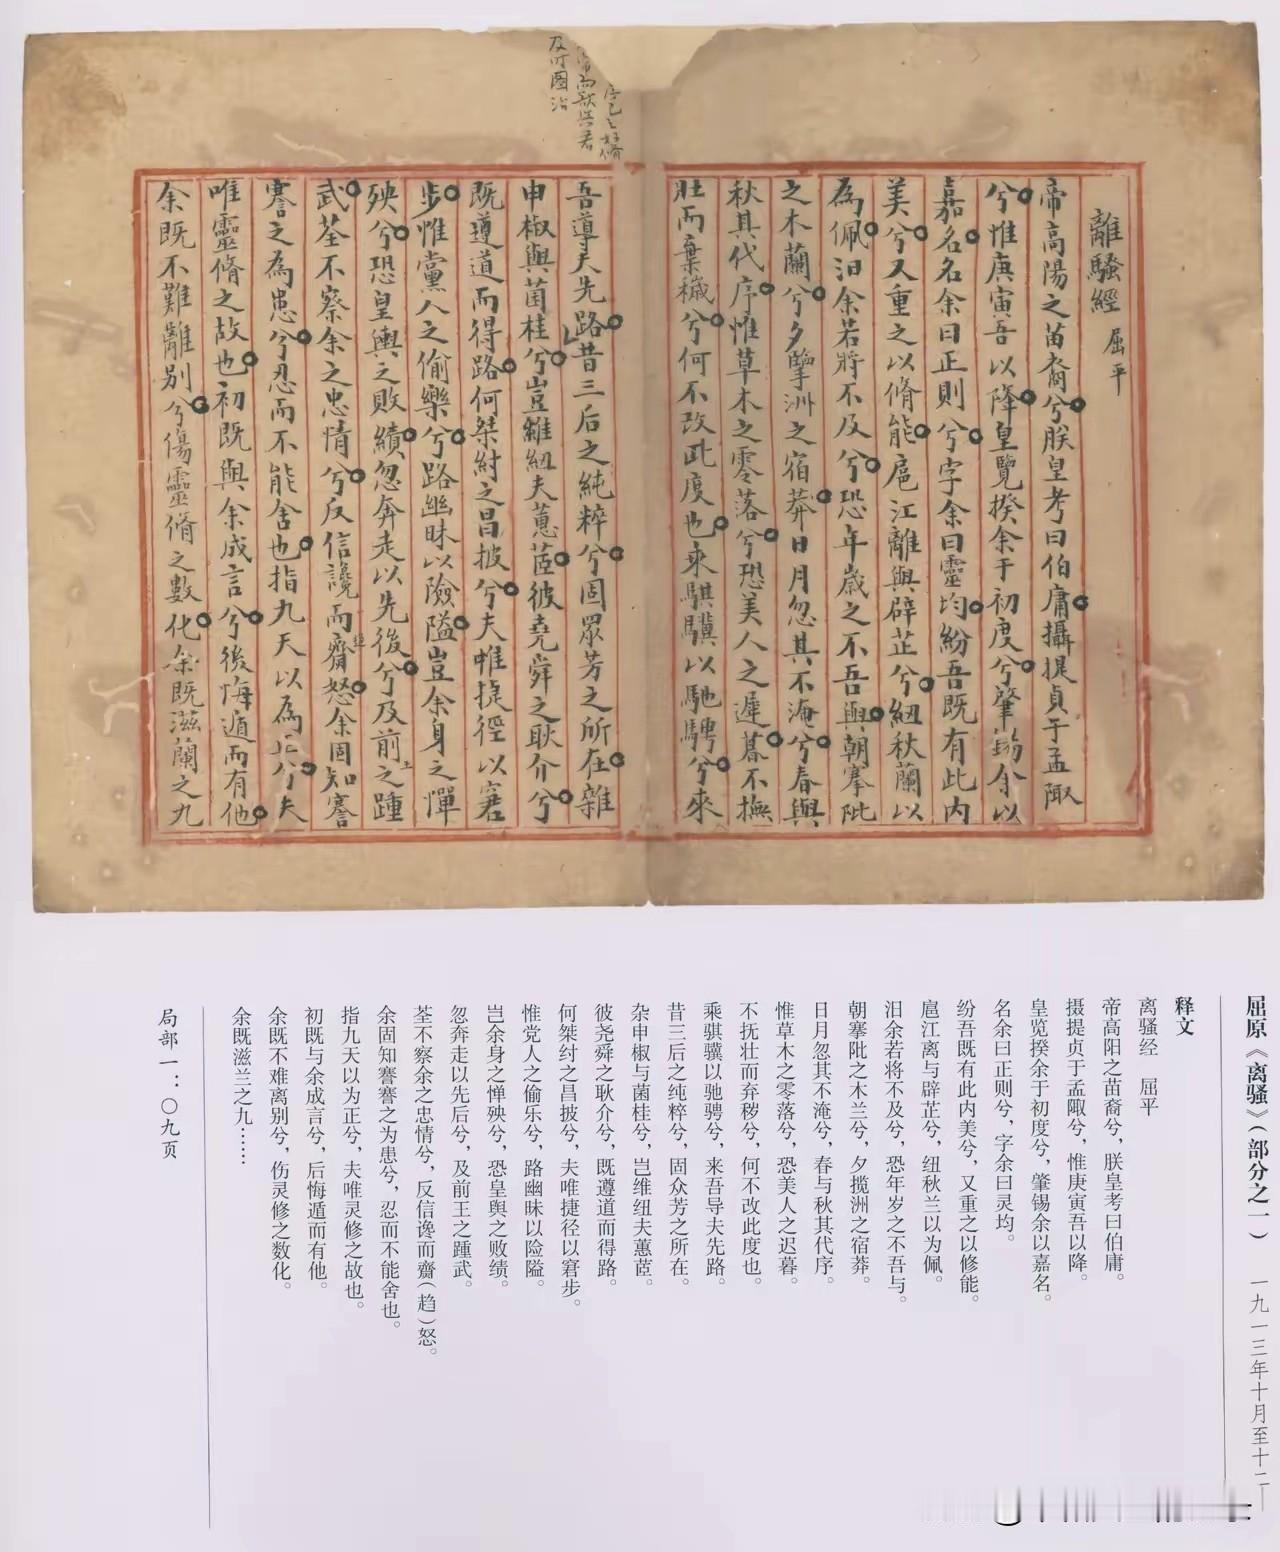 離騷經 屈平
帝高陽之苗裔兮朕皇考曰伯庸攝提貞于孟陬
兮惟庚寅吾以降皇覽揆余于初度兮肇錫余以
嘉名名余曰正則兮字余曰靈均紛吾既有此内
美兮又重之以脩能扈江離與辟芷兮紐秋蘭以
為佩汩余若將不及兮恐年歲之不吾與朝搴阰
之木蘭兮夕擥洲之宿莽日月忽其不淹兮春與
秋其代序惟草木之零落兮恐美人之遲暮不撫
壯而棄穢兮何不改此度也乘騏驥以馳騁兮來
吾導夫先路昔三后之純粹兮固眾芳之所在雜
申椒與菌桂兮豈維紐夫蕙茝彼堯舜之耿介兮
既遵道而得路何桀紂之昌披兮夫唯捷徑以窘
步惟黨人之偷樂兮路幽昧以險隘豈余身之憚
殃兮恐皇輿之敗績忽奔走以先後兮及前王之踵
武荃不察余之忠情兮反信讒而齌怒余固知謇
謇之為患兮忍而不能舍也指九天以為正兮夫
唯靈脩之故也初既與余成言兮後悔遁而有他
余既不難離別兮傷靈脩之數化余既滋蘭之九
屈原《离骚》（部分之一） 一九一三年十月至十二
释文
离骚经 屈平
帝高阳之苗裔兮，朕皇考曰伯庸。
摄提贞于孟陬兮，惟庚寅吾以降。
皇览揆余于初度兮，肇锡余以嘉名。
名余曰正则兮，字余曰灵均。
纷吾既有此内美兮，又重之以修能。
扈江离与辟芷兮，纽秋兰以为佩。
汩余若将不及兮，恐年岁之不吾与。
朝搴阰之木兰兮，夕揽洲之宿莽。
日月忽其不淹兮，春与秋其代序。
惟草木之零落兮，恐美人之迟暮。
不抚壮而弃秽兮，何不改此度也。
乘骐骥以驰骋兮，来吾导夫先路。
昔三后之纯粹兮，固众芳之所在。
杂申椒与菌桂兮，岂维纽夫蕙茝。
彼尧舜之耿介兮，既遵道而得路。
何桀纣之昌披兮，夫唯捷径以窘步。
惟党人之偷乐兮，路幽昧以险隘。
岂余身之惮殃兮，恐皇舆之败绩。
忽奔走以先后兮，及前王之踵武。
荃不察余之忠情兮，反信谗而齌（趋）怒。
余固知謇謇之为患兮，忍而不能舍也。
指九天以为正兮，夫唯灵修之故也。
初既与余成言兮，后悔遁而有他。
余既不难离别兮，伤灵修之数化。
余既滋兰之九……
局部一：〇九页